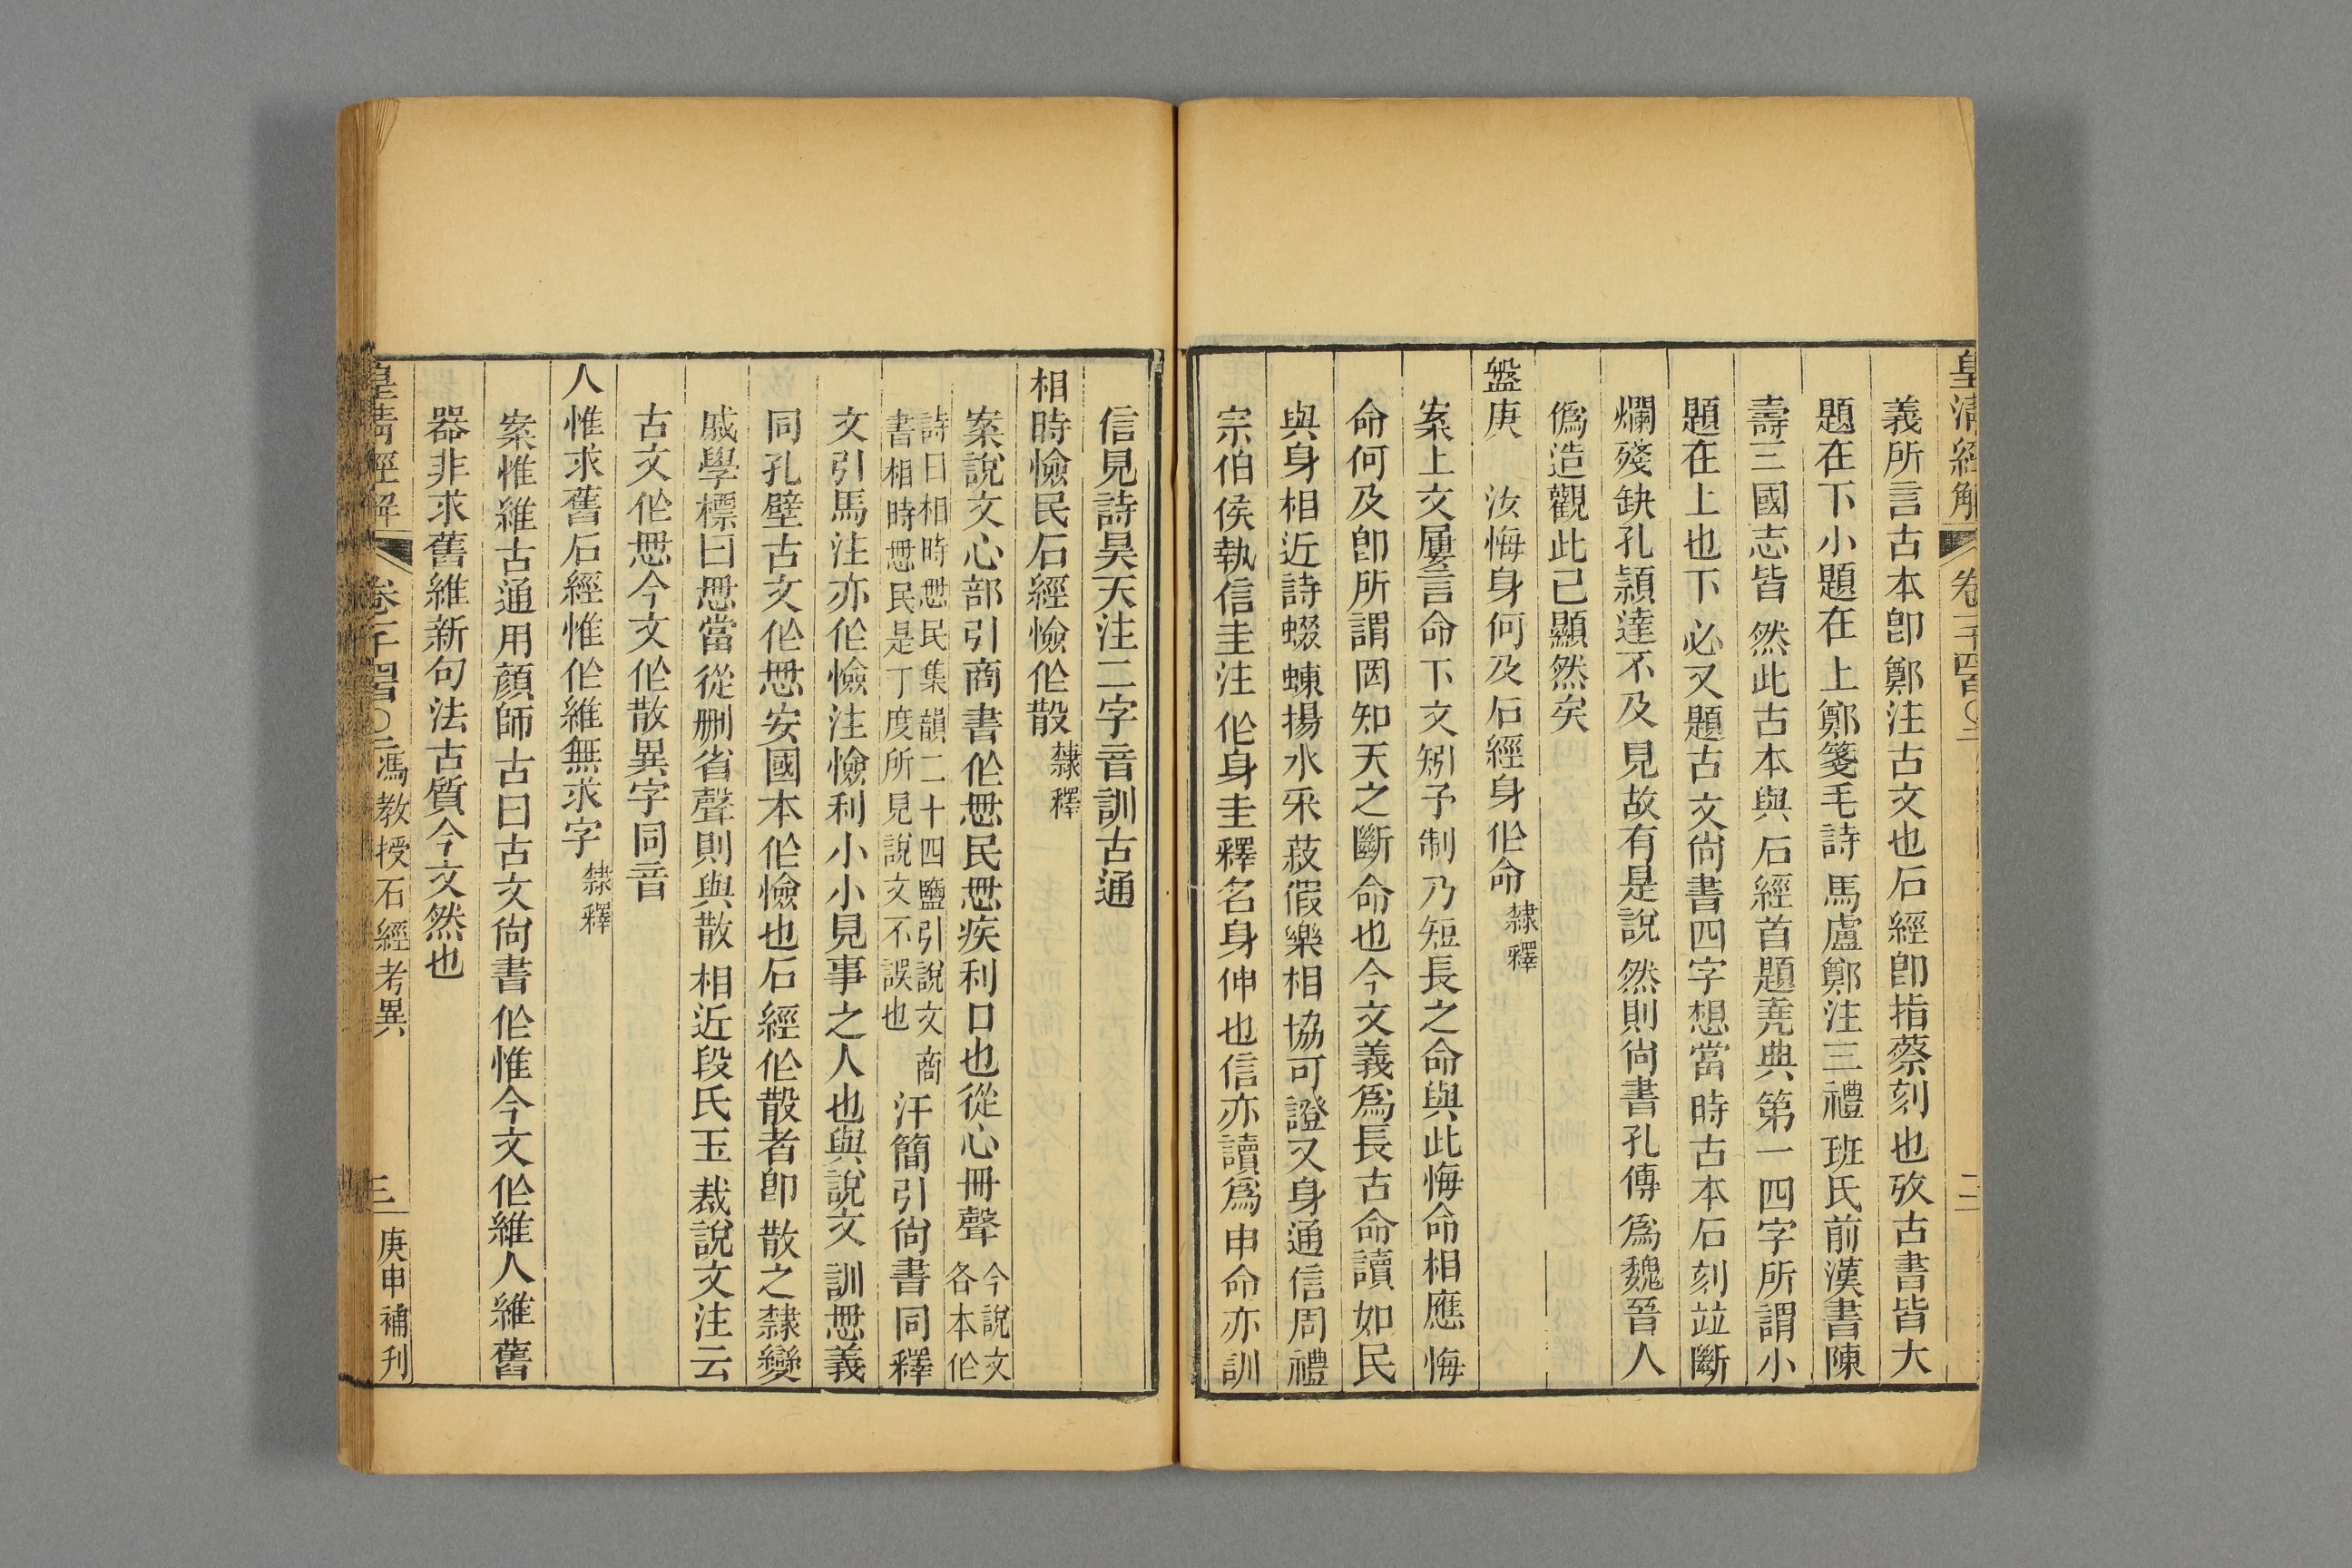 皇清經解 卷一千四百〇二 二
義所言古本卽鄭注古文也石經卽指蔡刻也攷古書皆大
題在下小題在上鄭箋毛詩馬盧鄭注三禮班氏前漢書陳
壽三國志皆然此古本與石經首題堯典第一四字所謂小
題在上也下必又題古文尙書四字想當時古本石刻竝斷
爛殘缺孔穎達不及見故有是說然則尙書孔傳爲魏晉人
僞造觀此已顯然矣
盤庚 汝悔身何及石經身作命隸釋
案上文屢言命下文矧予制乃短長之命與此悔命相應悔
命何及卽所謂罔知天之斷命也今文義爲長古命讀如民
與身相近詩蝃蝀揚水采菽假樂相協可證又身通信周禮
宗伯侯執信圭注作身圭釋名身伸也信亦讀爲申命亦訓
信見詩昊天注二字音訓古通
相時憸民石經憸作散隸釋
案說文心部引商書作思民思疾利口也從心冊聲今說文各本作
詩曰相時思民集韻二十四鹽引說文商
書相時思民是丁度所見說文不誤也汗簡引尙書同釋
文引馬注亦作憸注憸利小小見事之人也與說文訓思義
同孔壁古文作思安國本作憸也石經作散者卽散之隸變
戚學標曰思當從刪省聲則與散相近段氏玉裁說文注云
古文作思今文作散異字同音
人惟求舊石經惟作維無求字隸釋
案惟維古通用顏師古曰古文尙書作惟今文作維人維舊
器非求舊維新句法古質今文然也
皇清經解 卷一千四百〇二 馮教授石經考異 三 庚申補刊